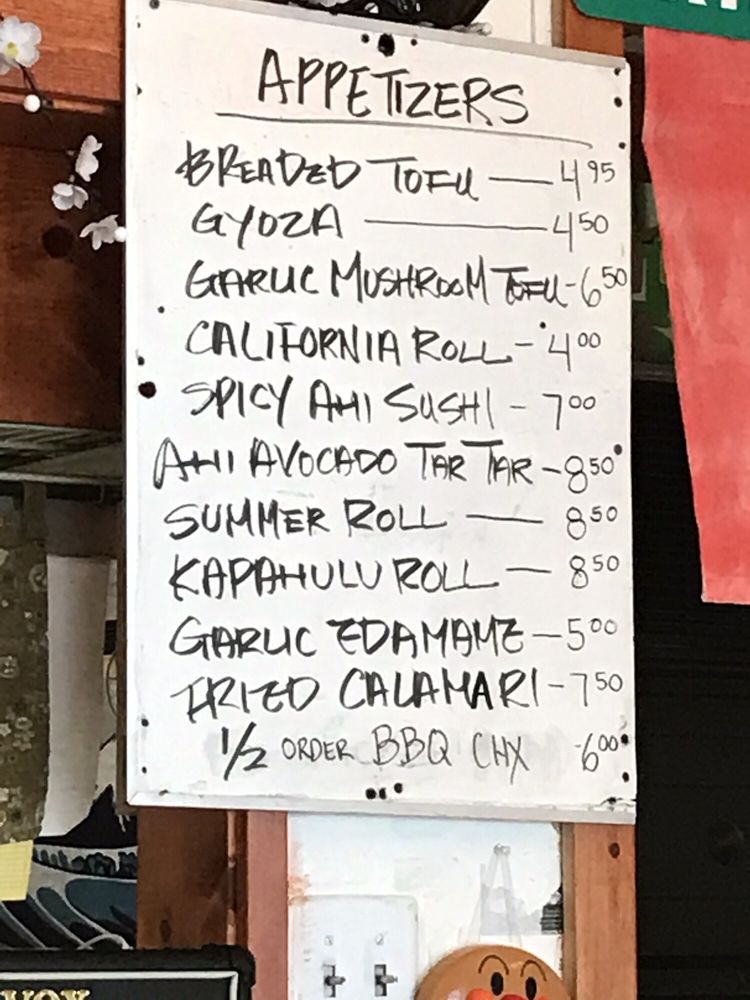 APPETIZERS
BREADED TOFU — 4.95
GYOZA — 4.50
GARLIC MUSHROOM TOFU - 6.50
CALIFORNIA ROLL - 4.00
SPICY AHI SUSHI - 7.00
AHI AVOCADO TAR TAR - 8.50
SUMMER ROLL — 8.50
KAPAHULU ROLL — 8.50
GARLIC EDAMAME — 5.00
FRIED CALAMARI - 7.50
1/2 ORDER BBQ CHX - 6.00
VOX